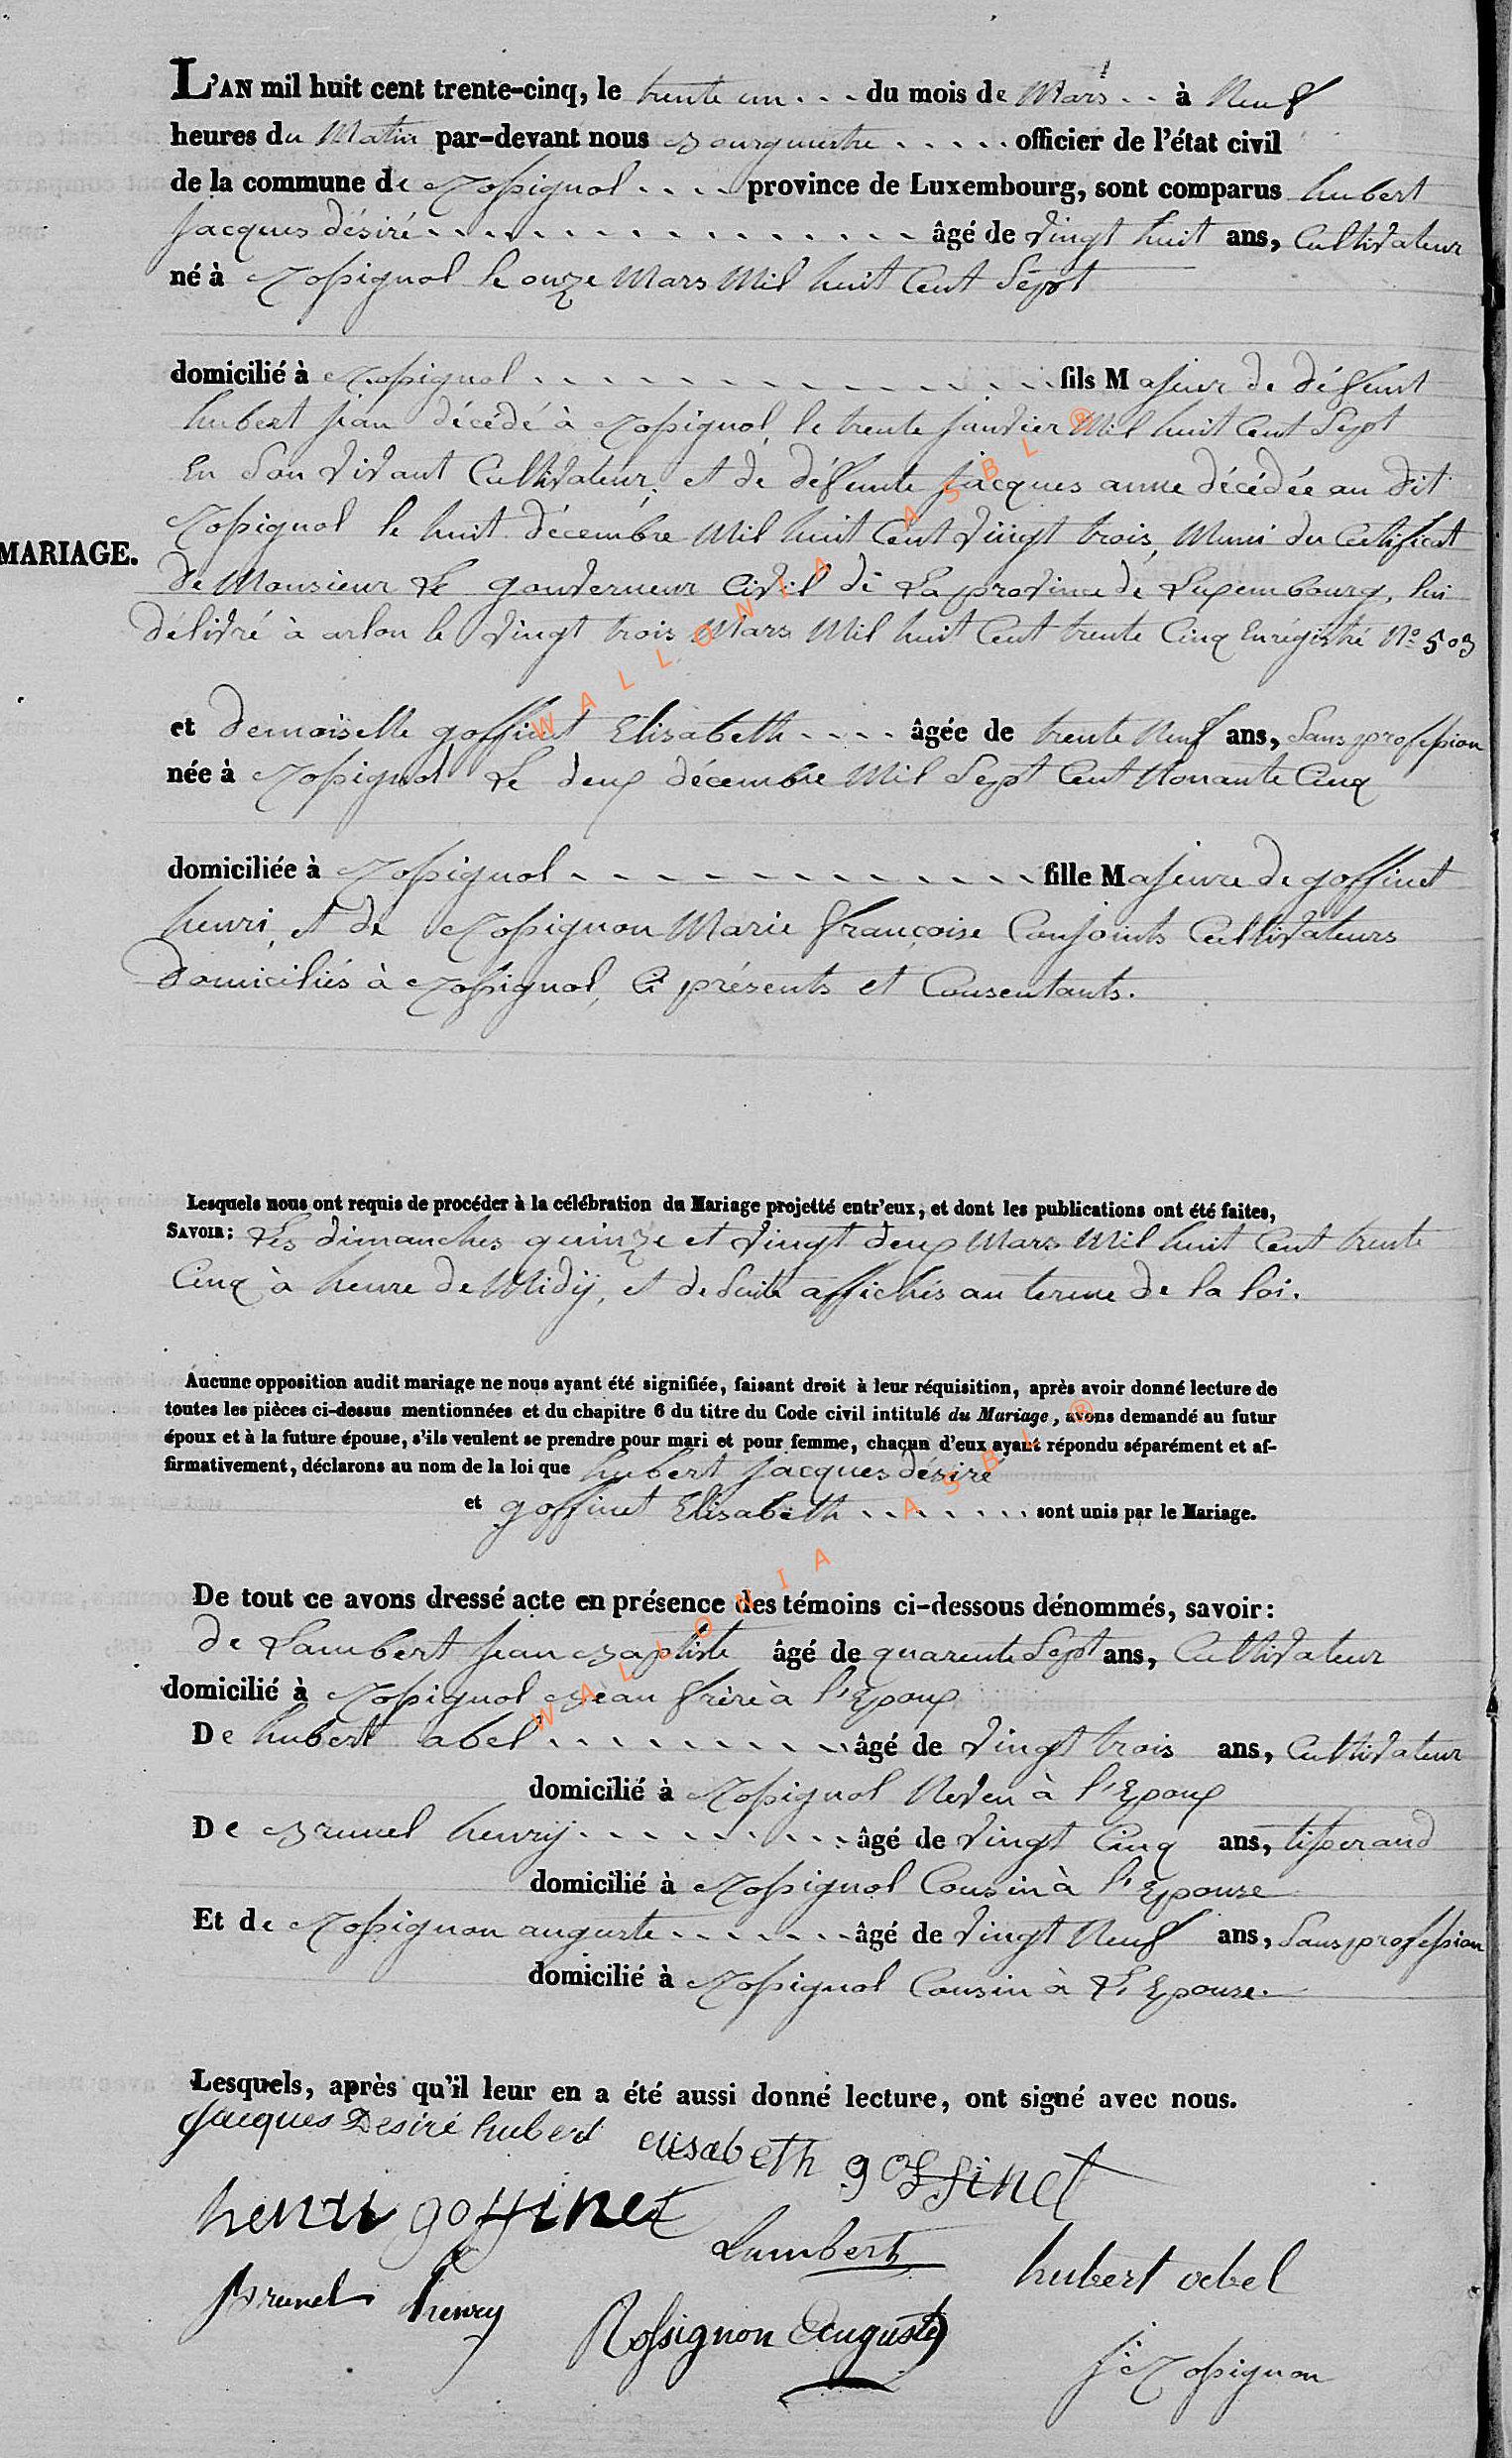 L'AN mil huit cent trente-cinq, le trente un du mois de Mars à Neuf
heures du Matin par-devant nous Bourgmestre officier de l'état civil
de la commune de Rossignol province de Luxembourg, sont comparus hubert
Jacques désiré âgé de vingt huit ans, Cultivateur
né à Rossignol le onze Mars Mil huit Cent Sept
domicilié à Rossignol fils Majeur de défunt
hubert jean décédé à Rossignol, le trente janvier Mil huit Cent Sept
En Son vivant Cultivateur, et de défunte Jacques anne décédée au dit
Rossignol le huit décembre Mil huit Cent vingt trois, Muni du Certificat
MARIAGE.
de Monsieur Le gouverneur Civil de La province de Luxembourg, lui
délivré à arlon le vingt trois Mars Mil huit Cent trente Cinq Enrégistré No 503
et demoiselle goffinet Elisabeth âgée de trente Neuf ans, Sans profession
née à Rossignol Le deux décembre Mil Sept Cent Nonante Cinq
domiciliée à Rossignol fille Majeure de goffinet
henri, et de Rossignon Marie françoise Conjoints Cultivateurs
domiciliés à Rossignol, Ci présents et Consentants.
Lesquels nous ont requis de procéder à la célébration du Mariage projetté entr'eux, et dont les publications ont été faites,
SAVOIR: Les dimanches quinze et vingt deux Mars Mil huit Cent trente
Cinq à heure de Midij, et de Suite affichés au terme de la loi.
Aucune opposition audit mariage ne nous ayant été signifiée, faisant droit à leur réquisition, après avoir donné lecture de
toutes les pièces ci-dessus mentionnées et du chapitre 6 du titre du Code civil intitulé du Mariage, avons demandé au futur
époux et à la future épouse, s'ils veulent se prendre pour mari et pour femme, chacun d'eux ayant répondu séparément et af-
firmativement, déclarons au nom de la loi que hubert Jacques désiré
et goffinet Elisabeth sont unis par le Mariage.
De tout ce avons dressé acte en présence des témoins ci-dessous dénommés, savoir:
de Lambert jean Baptiste âgé de quarente Sept ans, Cultivateur
domicilié à Rossignol Beau frère à l'Epoux
De hubert abel âgé de vingt trois ans, Cultivateur
domicilié à Rossignol Neveu à l'Epoux
De Brunel henrij âgé de vingt Cinq ans, tisserand
domicilié à Rossignol Cousin à l'Epouse
Et de Rossignon auguste âgé de vingt Neuf ans, Sans profession
domicilié à Rossignol Cousin à L'Epouse.
Lesquels, après qu'il leur en a été aussi donné lecture, ont signé avec nous.
Jacques Desiré hubert elisabeth goffinet
henri goffinet
Lambert hubert abel
Brunel henry
Rossignon Auguste
j: Rossignon
WALLONIA ASBL ®
WALLONIA ASBL ®